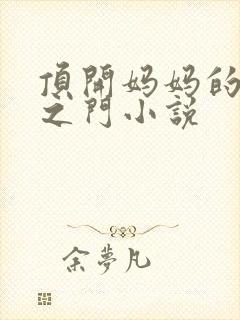 頂開妈妈的
之門小説
余夢凡